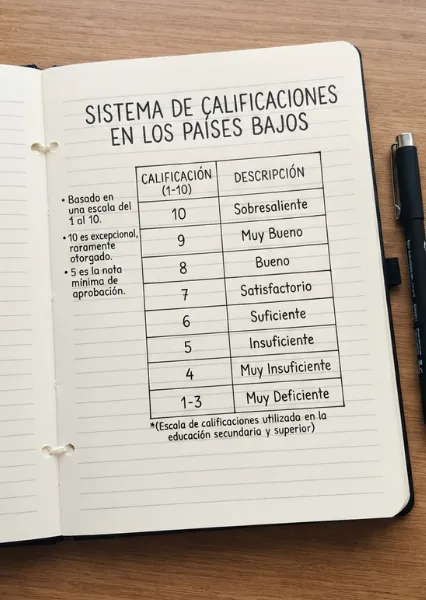 SISTEMA DE CALIFICACIONES
EN LOS PAÍSES BAJOS
• Basado en
una escala del
1 al 10.
• 10 es excepcional,
raramente
otorgado.
• 5 es la nota
mínima de
aprobación.
CALIFICACIÓN (1-10) DESCRIPCIÓN
10 Sobresaliente
9 Muy Bueno
8 Bueno
7 Satisfactorio
6 Suficiente
5 Insuficiente
4 Muy Insuficiente
1-3 Muy Deficiente
*(Escala de calificaciones utilizada en la
educación secundaria y superior)